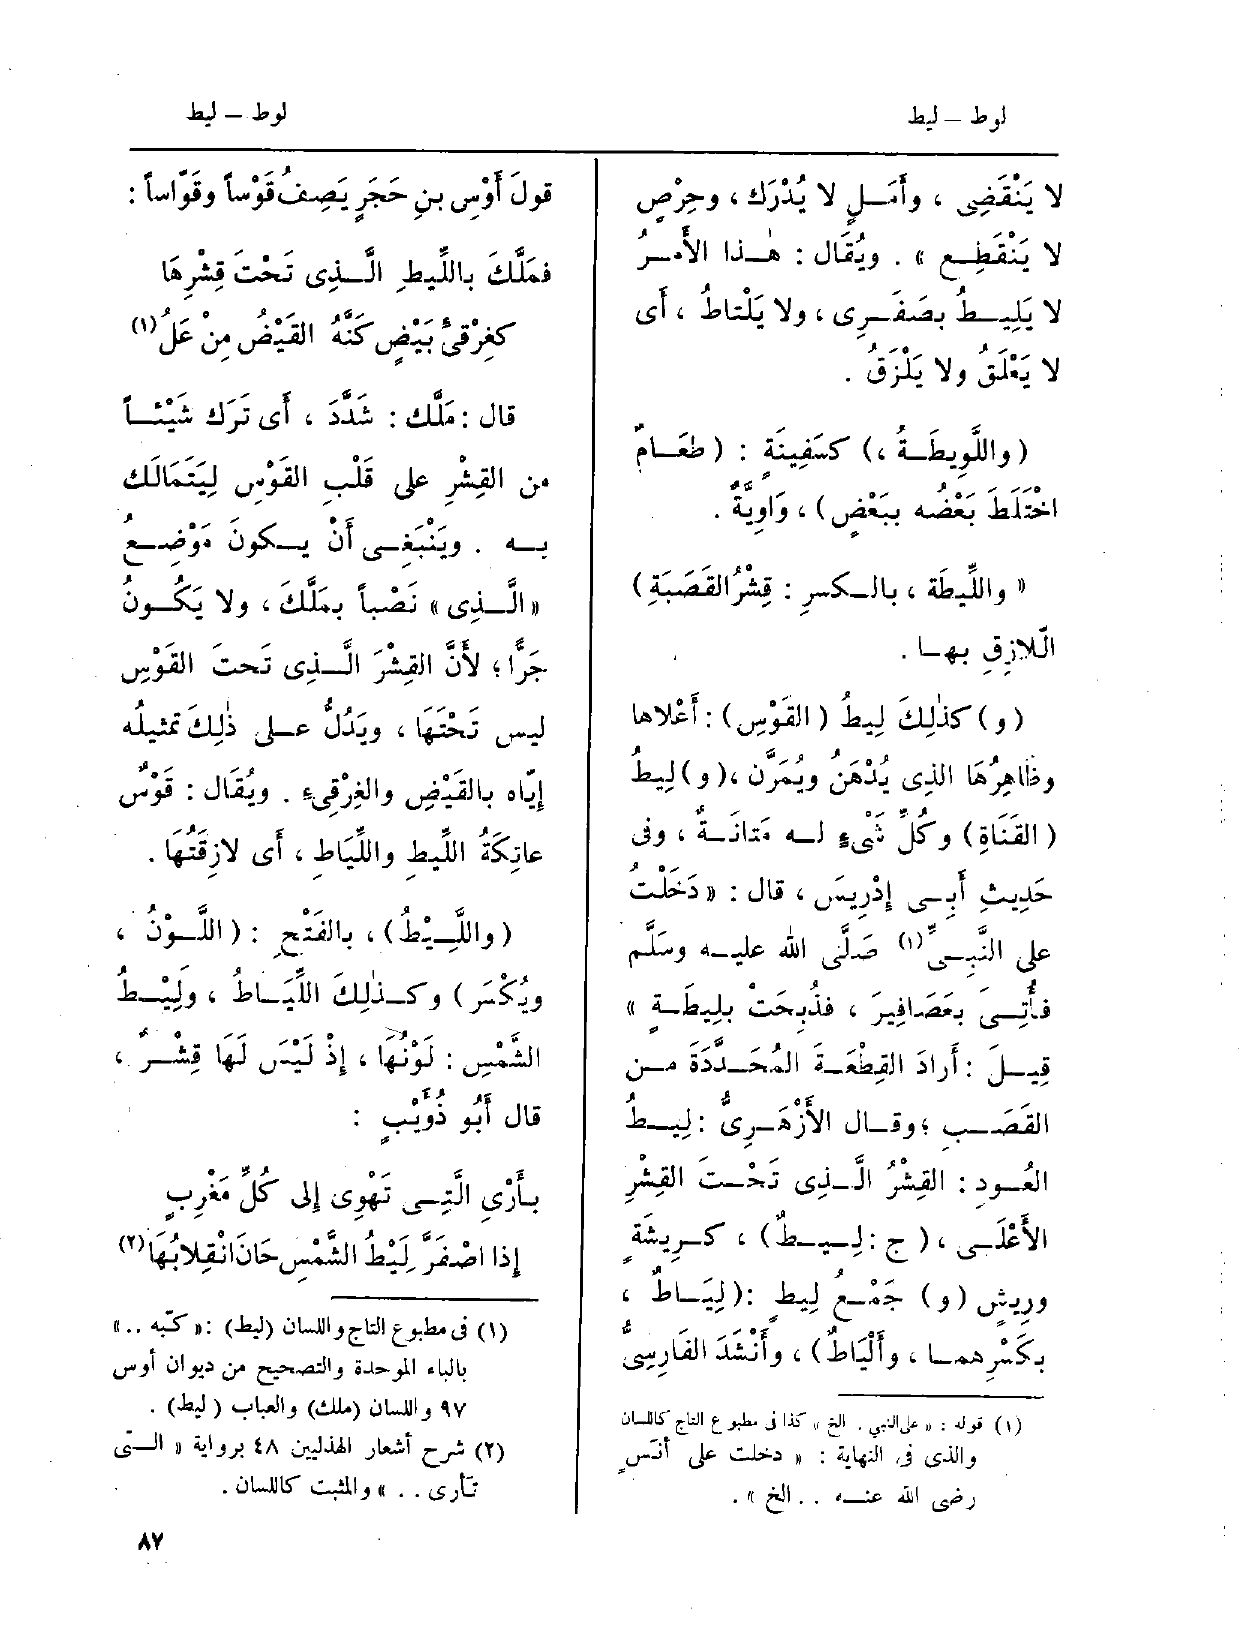 لوط – ليط
لوط – ليط
لا يَنْقَضِى ، وأَمَــلٍ لا يُدْرَك ، وحِرْصٍ
لا يَنْقَطِـع » . ويُقَال : هٰـذا الأَمـرُ
لا يَلِيـطُ بصَفَـرِى ، ولا يَلْتاطُ ، أَى
لا يَعْلَقُ ولا يَلْزَقُ .
( واللَّوِيطَـةُ ،) كسَفِينَةٍ : ( طَعَـامٌ
اخْتَلَطَ بَعْضُه ببَعْضٍ ) ، وَاوِيَّةٌ .
« واللِّيطَة ، بالـكسرِ : قِشْرُ القَصَبَةِ )
الّلازِقِ بهـا .
( و ) كذٰلِكَ لِيطُ ( القَوْسِ ) : أَعْلاها
وظاهِرُهَا الذى يُدْهَنُ ويُمَرَّن ،( و ) لِيطُ
( القَنَاةِ ) و كُلِّ شىْءٍ لـه مَتانَـةٌ ، وفى
حَدِيثِ أَبـى إِدْرِيسَ ، قال : « دَخَلْتُ
على النَّبِـىِّ (١) صَلَّى الله عليـه وسَلَّم
فأُتِـىَ بعَصَافِيرَ ، فذُبِحَتْ بلِيطَـةٍ »
قِيـلَ : أَرادَ القِطْعَـةَ المُحَـدَّدَةَ مـن
القَصَـبِ ؛ وقـال الأَزْهَـرِىُّ : لِيـطُ
العُـودِ : القِشْرُ الَّـذِى تَحْـتَ القِشْرِ
الأَعْلَـى ، ( ج : لِـيـطٌ ) ، كـرِيشَةٍ
ورِيشٍ ( و ) جَمْـعُ لِيطٍ :( لِيَـاطٌ ،
بكَسْرِهمـا ، وأَلْيَاطٌ ) ، وأَنْشَدَ الفَارِسِىُّ
(١) قوله : « على النبي . الخ » كذا فى مطبوع التاج كاللسان
والذى فى النهاية : « دخلت على أنَسٍ
رضى الله عنـه .. الخ » .
قولَ أَوْسِ بنِ حَجَرٍ يَصِفُ قَوْساً وقَوّاساً :
فمَلَّكَ باللِّيطِ الَّـذِى تَحْتَ قِشْرِهَا
كغِرْقئِ بَيْضٍ كَنَّهُ القَيْضُ مِنْ عَلُ (١)
قال : مَلَّك : شَدَّدَ ، أَى تَرَك شَيْئـاً
من القِشْرِ على قَلْبِ القَوْسِ لِيَتَمَالَك
بـه . ويَنْبَغِـى أَنْ يـكونَ مَوْضِـعُ
« الَّـذِى » نَصْباً بمَلَّكَ ، ولا يَكُـونُ
جَرًّا ؛ لأَنَّ القِشْرَ الَّـذِى تَحتَ القَوْسِ
ليس تَحْتَهَا ، ويَدُلُّ عـلى ذٰلِكَ تمثيلُه
إِيّاه بالقَيْضِ والغِرْقىءِ . ويُقَال : قَوْسٌ
عاتِكَةُ اللِّيطِ واللِّيَاطِ ، أَى لازِقَتُهَا .
( واللَّـيْطُ ) ، بالفَتْحِ : ( اللَّـوْنُ ،
ويُكْسَر ) وكـذٰلِكَ اللِّيَـاطُ ، ولَيْـطُ
الشَّمْسِ : لَوْنُهَا ، إِذْ لَيْسَ لَهَا قِشْـرٌ ،
قال أَبُو ذُؤَيْبٍ :
بأَرْىِ الَّتِـى تَهْوِى إِلى كُلِّ مَغْرِبٍ
إِذا اصْفَرَّ لِيْطُ الشَّمْسِ حَانَ انْقِلابُهَا (٢)
(١) فى مطبوع التاج واللسان (ليط) :« كَبَّه .. »
بالباء الموحدة والتصحيح من ديوان أوس
٩٧ واللسان (ملك) والعباب ( ليط ) .
(٢) شرح أشعار الهذليين ٤٨ برواية « الـتى
تأرى .. » والمثبت كاللسان .
٨٧